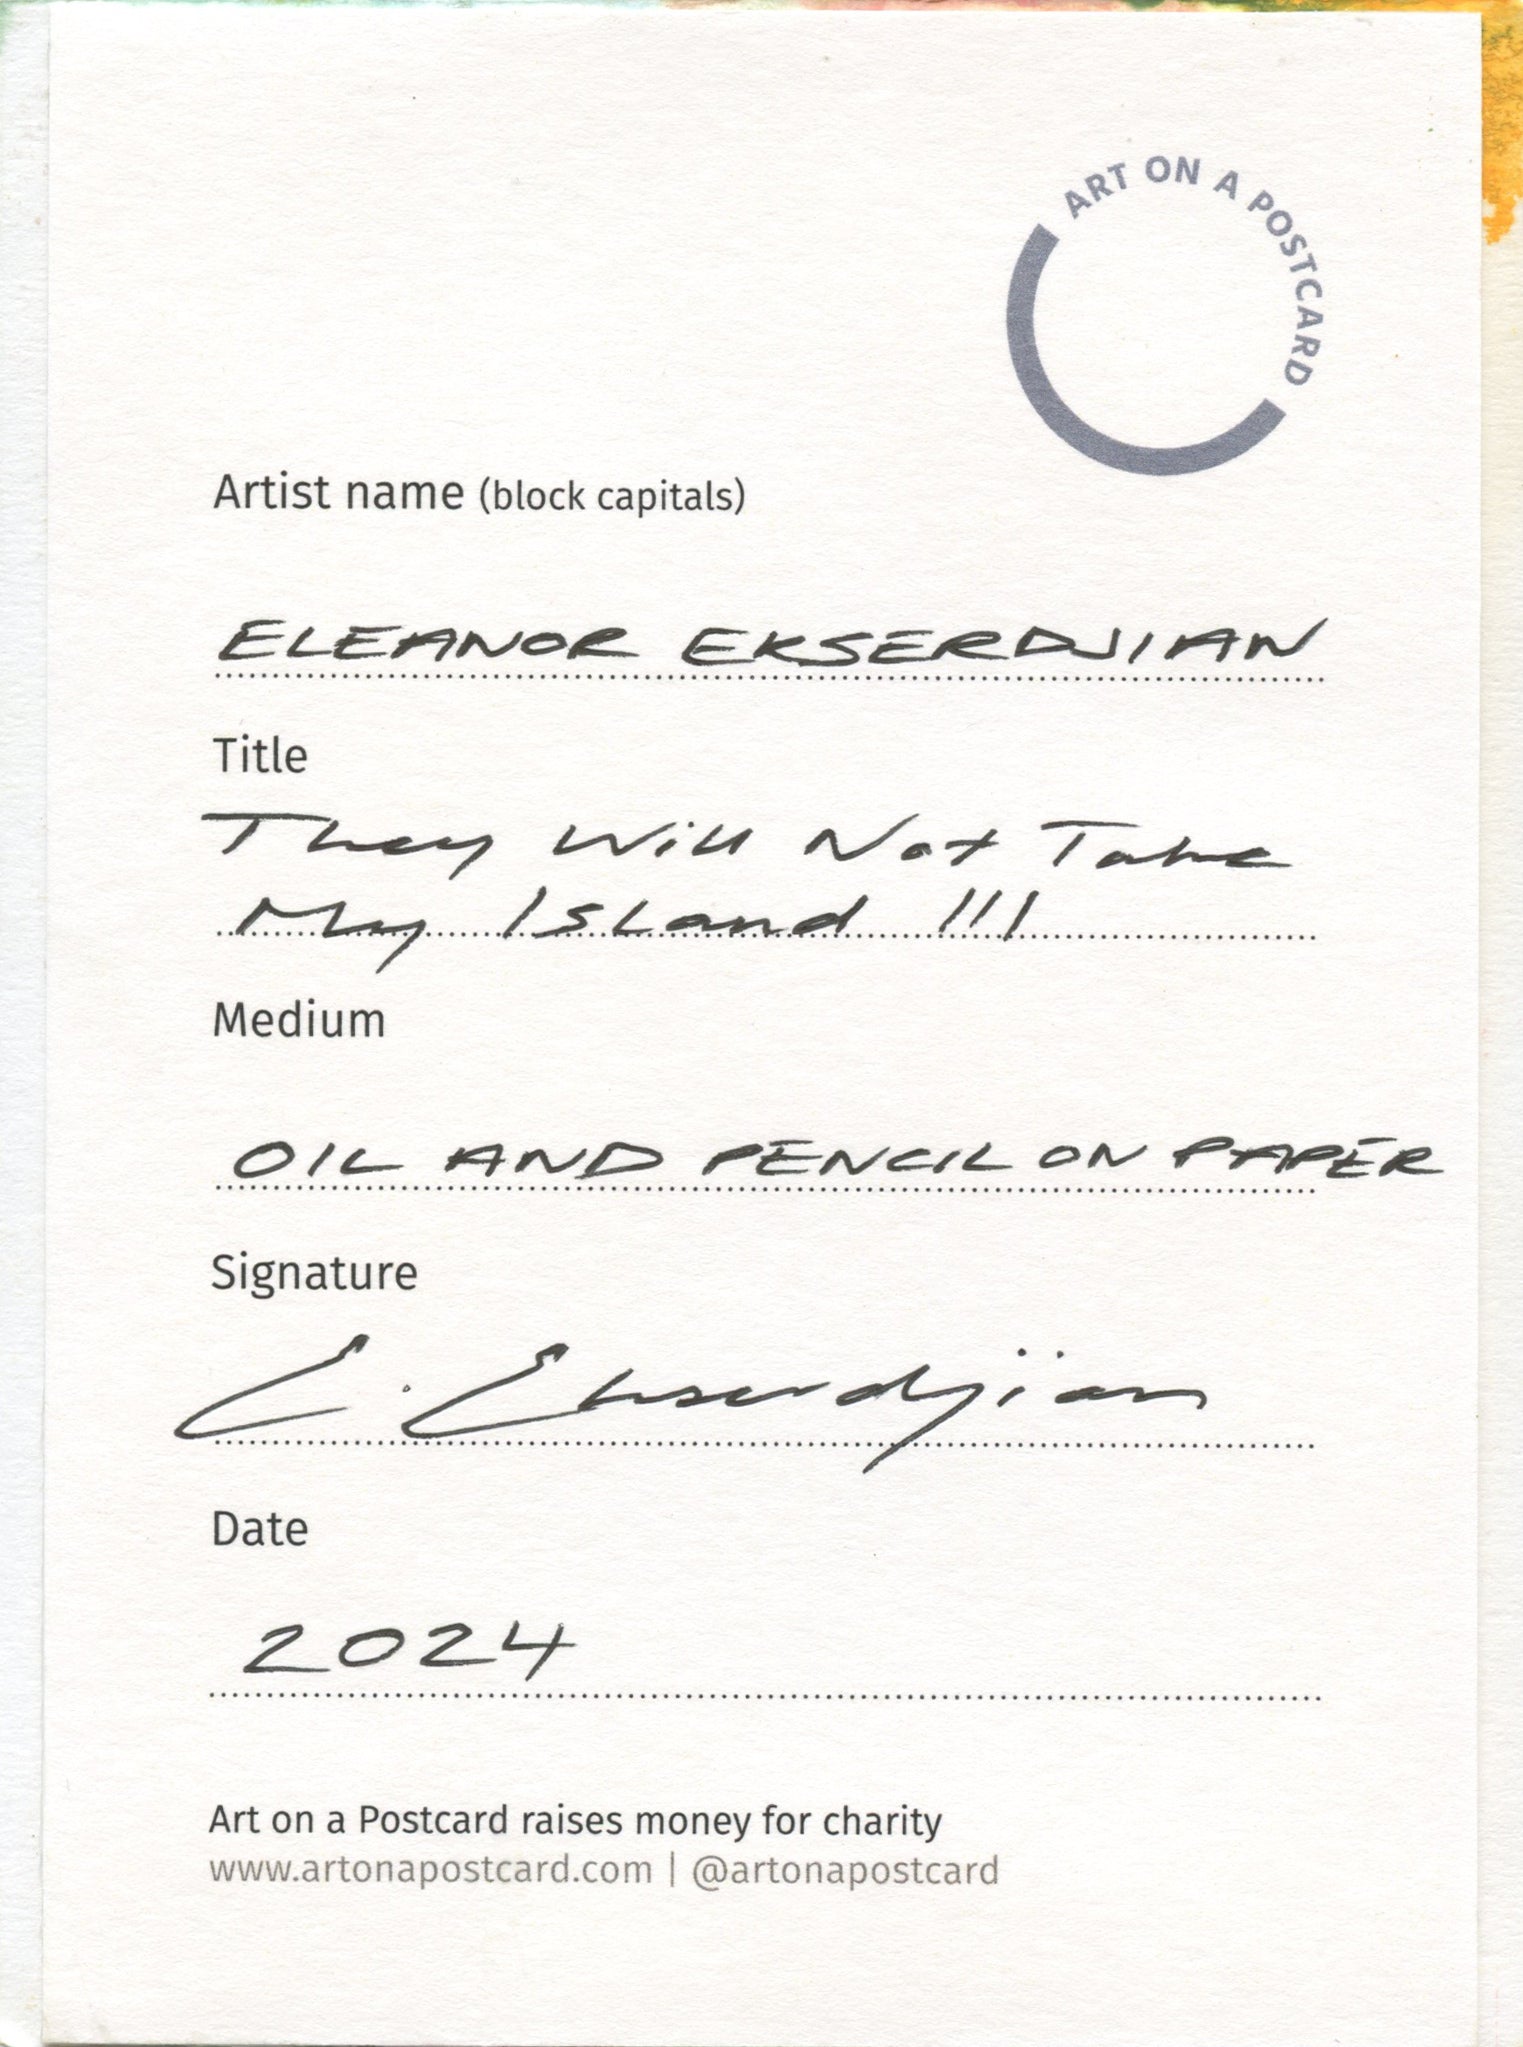 ART ON A POSTCARD
Artist name (block capitals)
ELEANOR EKSERDJIAN
Title
They Will Not Take
My Island !!!
Medium
OIL AND PENCIL ON PAPER
Signature
E. Ekserdjian
Date
2024
Art on a Postcard raises money for charity
www.artonapostcard.com | @artonapostcard